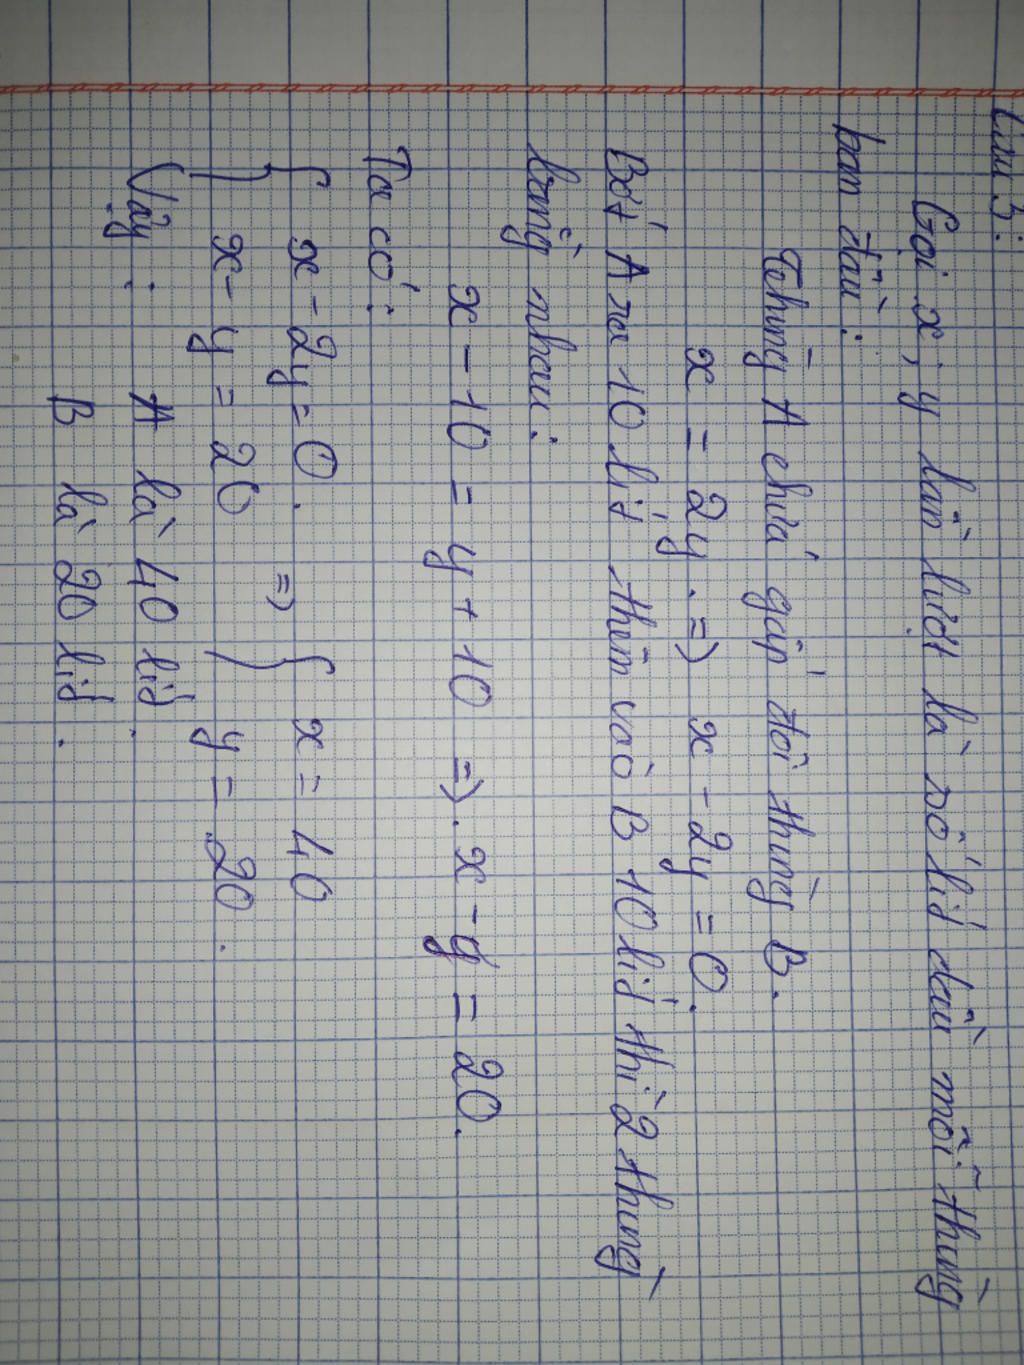 Câu 3:
Gọi x, y lần lượt là số lít dầu mỗi thùng
ban đầu:
Thùng A chứa gấp đôi thùng B.
x = 2y. => x - 2y = 0.
Bớt A ra 10 lít, thêm vào B 10 lít thì 2 thùng
bằng nhau:
x - 10 = y + 10 =>. x - y = 20.
Ta có:
{ x - 2y = 0. => { x = 40
x - y = 20 y = 20.
Vậy: A là 40 lít.
B là 20 lít.